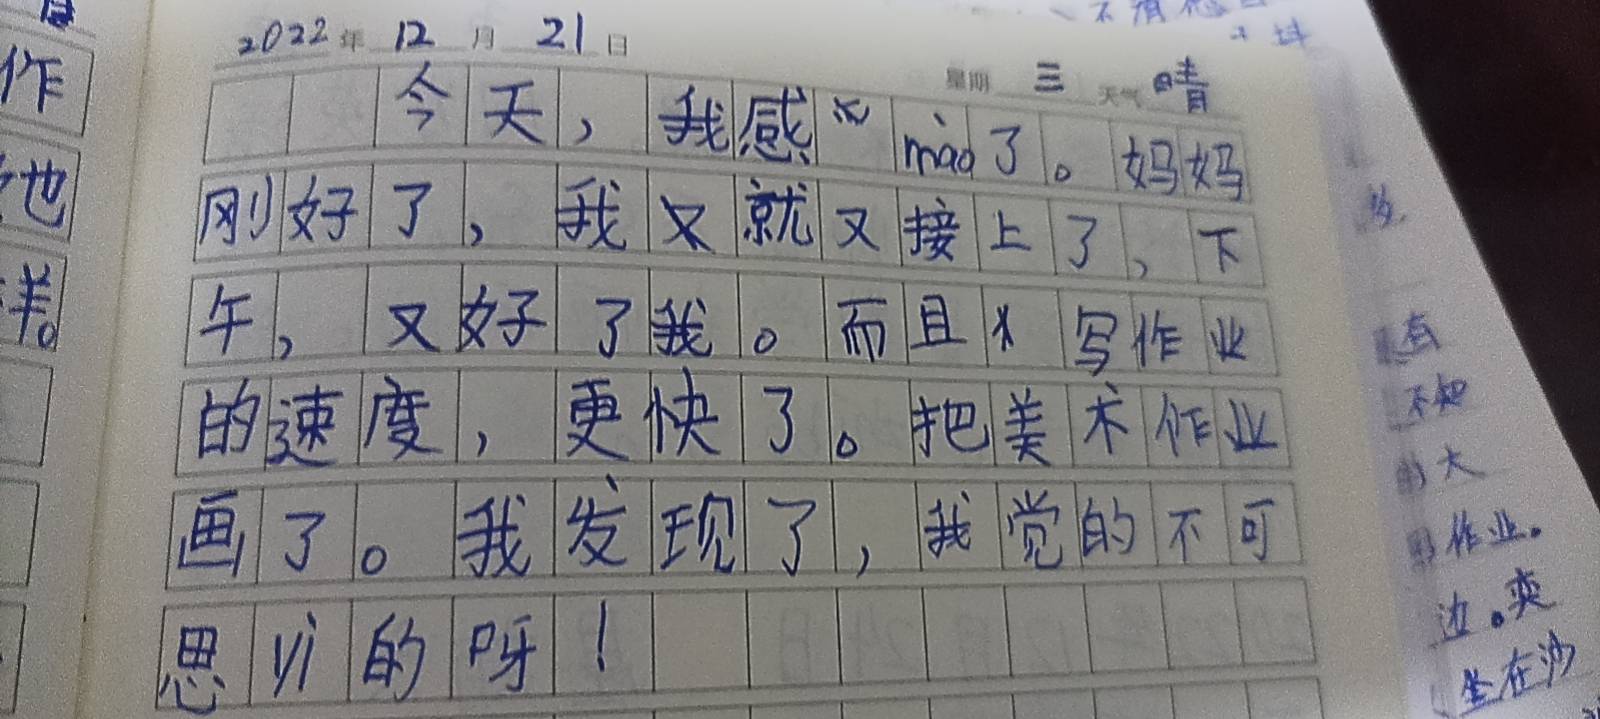 2022年 12月 21日
星期 三 天气 晴
今天，我感mào了。妈妈
刚好了，我又就又接上了，下
午，又好了我。而且 写作业
的速度，更快了。把美术作业
画了。我发现了，我觉的不可
思yì的呀！
作
也
羊。
有
不知
的大
作业。
边。爽
坐在沙